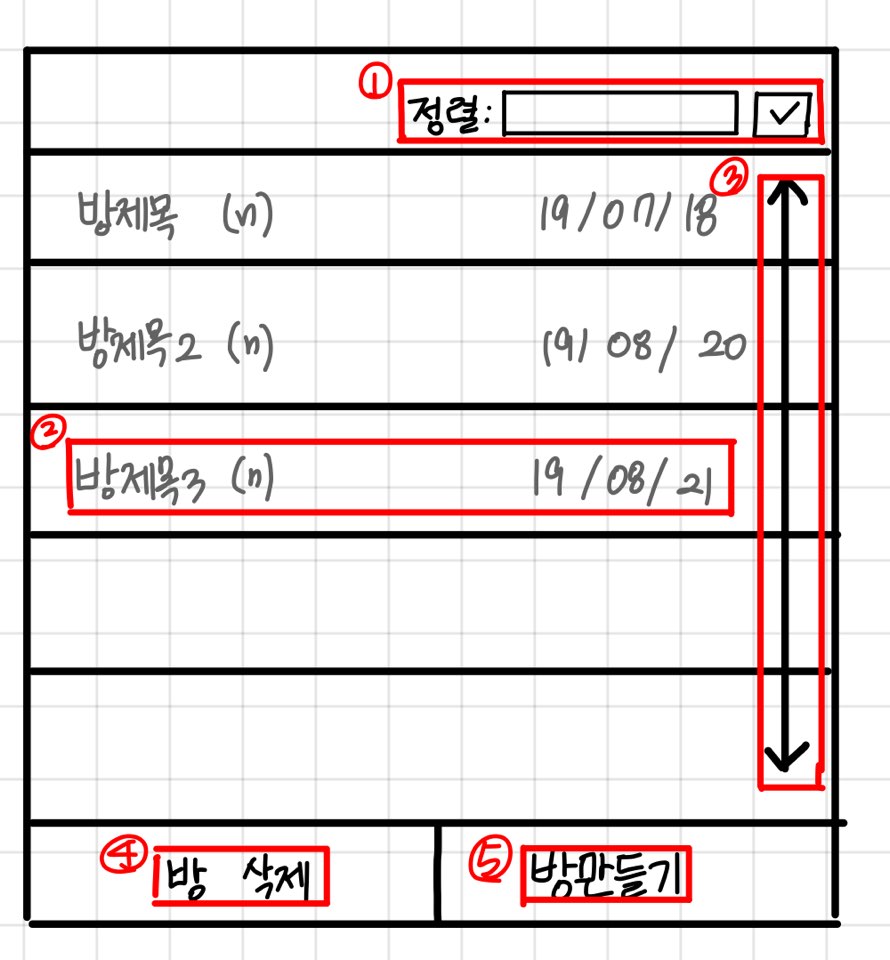 ① 정렬:
③
방제목 (n) 19/07/18
방제목2 (n) 19/08/20
②
방제목3 (n) 19/08/21
④ 방 삭제 ⑤ 방만들기